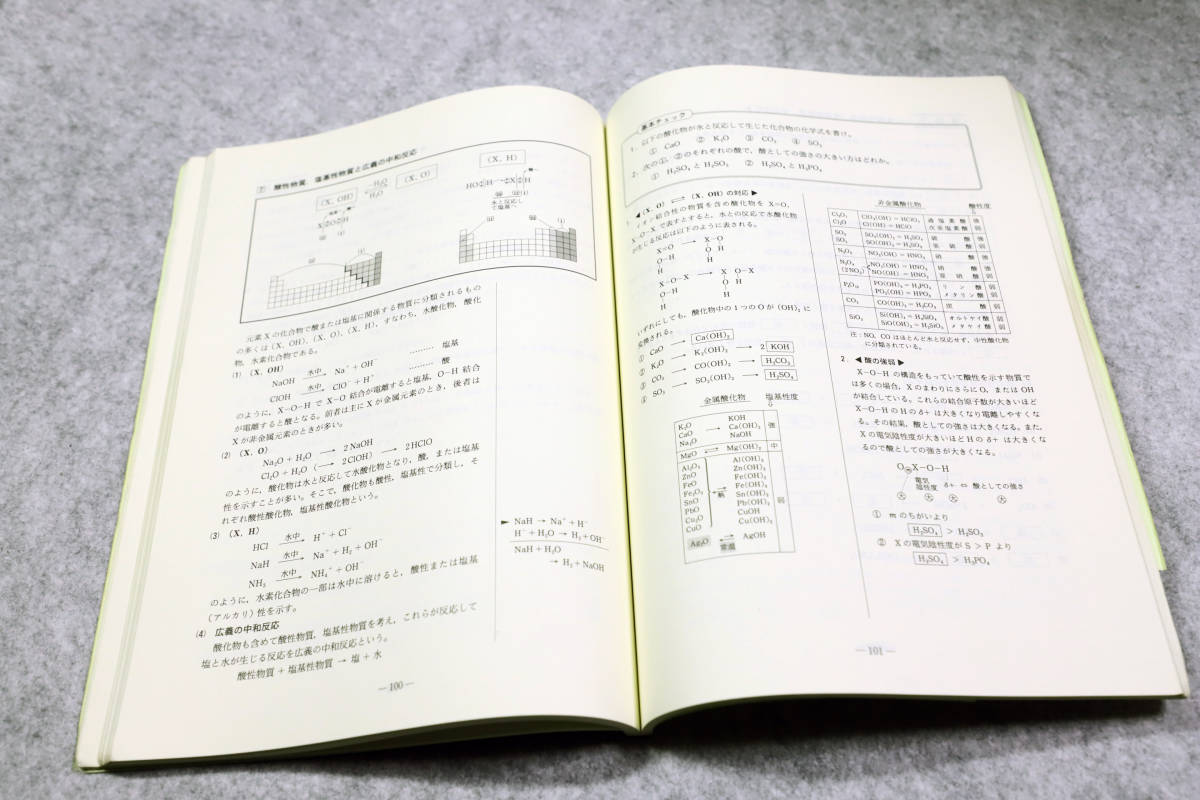 ② 酸性物質，塩基性物質と広義の中和反応
(X, OH)
−H₂O
H₂O
(X, O)
(X, H)
水と反応し
て塩基へ
元素 X の化合物で酸または塩基に関係する物質に分類されるもの
の多くは (X, OH), (X, O), (X, H), すなわち，水酸化物，酸化
物，水素化合物である。
(1) (X, OH)
NaOH 水中 → Na⁺ + OH⁻ ……… 塩基
ClOH 水中 → ClO⁻ + H⁺ ……… 酸
のように，X−O−H で X−O 結合が電離すると塩基，O−H 結合
が電離すると酸となる。前者は主に X が金属元素のとき，後者は
X が非金属元素のときが多い。
(2) (X, O)
Na₂O + H₂O ⟶ 2 NaOH
Cl₂O + H₂O (⟶ 2 ClOH) ⟶ 2 HClO
のように，酸化物は水と反応して水酸化物となり，酸，または塩基
性を示すことが多い。そこで，酸化物も酸性，塩基性で分類し，そ
れぞれ酸性酸化物，塩基性酸化物という。
(3) (X, H)
HCl 水中 → H⁺ + Cl⁻
NaH 水中 → Na⁺ + H₂ + OH⁻
NH₃ 水中 → NH₄⁺ + OH⁻
のように，水素化合物の一部は水中に溶けると，酸性または塩基
(アルカリ) 性を示す。
(4) 広義の中和反応
酸化物も含めて酸性物質，塩基性物質を考え，これらが反応して
塩と水が生じる反応を広義の中和反応という。
酸性物質 + 塩基性物質 → 塩 + 水
► NaH → Na⁺ + H⁻
H⁻ + H₂O → H₂ + OH⁻
NaH + H₂O
→ H₂ + NaOH
—100—
基本チェック
1. 以下の酸化物が水と反応して生じた化合物の化学式を書け。
① CaO ② K₂O ③ CO₂ ④ SO₃
2. 次の①，②のそれぞれの酸で，酸としての強さの大きい方はどれか。
① H₂SO₄ と H₂SO₃ ② H₂SO₄ と H₃PO₄
1. ◀ (X, O) ⇄ (X, OH) の対応 ▶
イオン結合性の物質を含め酸化物を X=O,
X−O−X で表すとすると，水との反応で水酸化物
が生じる反応は以下のように表される。
X=O ⟶ X−O
O−H O H
H H
X−O−X ⟶ X O−X
O−H O H
H H
いずれにしても，酸化物中の 1 つの O が (OH)₂ に
変換される。
① CaO ⟶ Ca(OH)₂
② K₂O ⟶ K₂(OH)₂ ⟶ 2 KOH
③ CO₂ ⟶ CO(OH)₂ ⟶ H₂CO₃
④ SO₃ ⟶ SO₂(OH)₂ ⟶ H₂SO₄
金属酸化物 塩基性度
K₂O KOH
CaO ⟶ Ca(OH)₂ 強
Na₂O NaOH
MgO ⇄ Mg(OH)₂ 中
Al₂O₃ Al(OH)₃
ZnO Zn(OH)₂
FeO Fe(OH)₂
Fe₂O₃ 熱 Fe(OH)₃ 弱
SnO Sn(OH)₂
PbO Pb(OH)₂
Cu₂O CuOH
CuO Cu(OH)₂
Ag₂O ⇄ 常温 AgOH
非金属酸化物 酸性度
Cl₂O₇ ClO₃(OH) = HClO₄ 過塩素酸 強
Cl₂O Cl(OH) = HClO 次亜塩素酸 弱
SO₃ SO₂(OH)₂ = H₂SO₄ 硫酸 強
SO₂ SO(OH)₂ = H₂SO₃ 亜硫酸 弱
N₂O₅ NO₂(OH) = HNO₃ 硝酸 強
N₂O₄ NO₂(OH) = HNO₃ 硝酸 強
(2NO₂) NO(OH) = HNO₂ 亜硝酸 弱
P₄O₁₀ PO(OH)₃ = H₃PO₄ リン酸 弱
PO₂(OH) = HPO₃ メタリン酸 弱
CO₂ CO(OH)₂ = H₂CO₃ 炭酸 弱
SiO₂ Si(OH)₄ = H₄SiO₄ オルトケイ酸 弱
SiO(OH)₂ = H₂SiO₃ メタケイ酸 弱
注：NO, CO はほとんど水と反応せず，中性酸化物
に分類されている。
2. ◀ 酸の強弱 ▶
X−O−H の構造をもっていて酸性を示す物質で
は多くの場合，X のまわりにさらに O, または OH
が結合している。これらの結合原子数が大きいほど
X−O−H の H の δ+ は大きくなり電離しやすくな
る。その結果，酸としての強さは大きくなる。また，
X の電気陰性度が大きいほど H の δ+ は大きくな
るので酸としての強さが大きくなる。
Oₘ X−O−H
電気
陰性度 δ+ ⇔ 酸としての強さ
大 大 大 大
① m のちがいより
H₂SO₄ > H₂SO₃
② X の電気陰性度が S > P より
H₂SO₄ > H₃PO₄
—101—